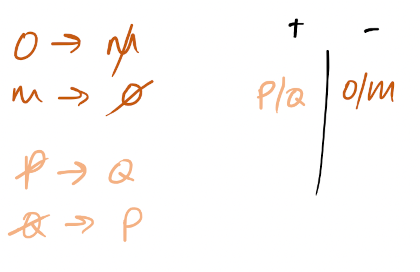 O → M̸
M → O̸
P̸ → Q
Q̸ → P
+ | -
P/Q | O/M